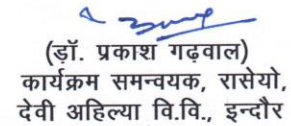 (ड़ॉ. प्रकाश गढ़वाल)
कार्यक्रम समन्वयक, रासेयो,
देवी अहिल्या वि.वि., इन्दौर